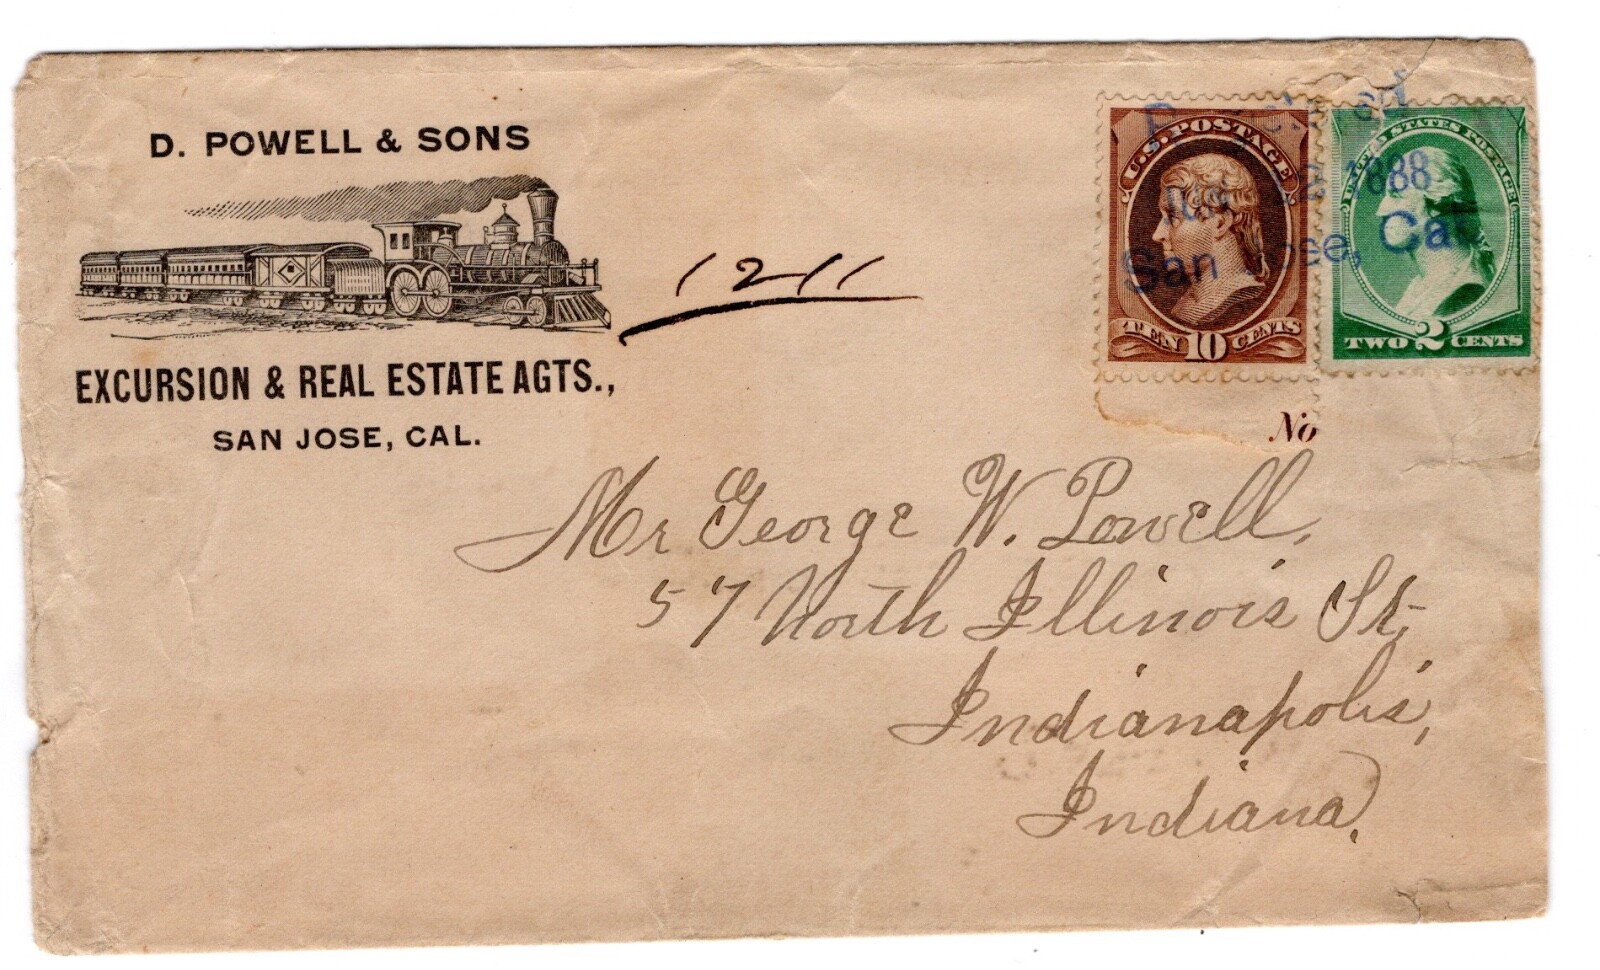 D. POWELL & SONS
EXCURSION & REAL ESTATE AGTS.,
SAN JOSE, CAL.
1211
U.S. POSTAGE
TEN 10 CENTS
UNITED STATES POSTAGE
TWO 2 CENTS
Registered
1888
San Jose, Cal
No
Mr George W. Powell,
57 North Illinois St,
Indianapolis,
Indiana.